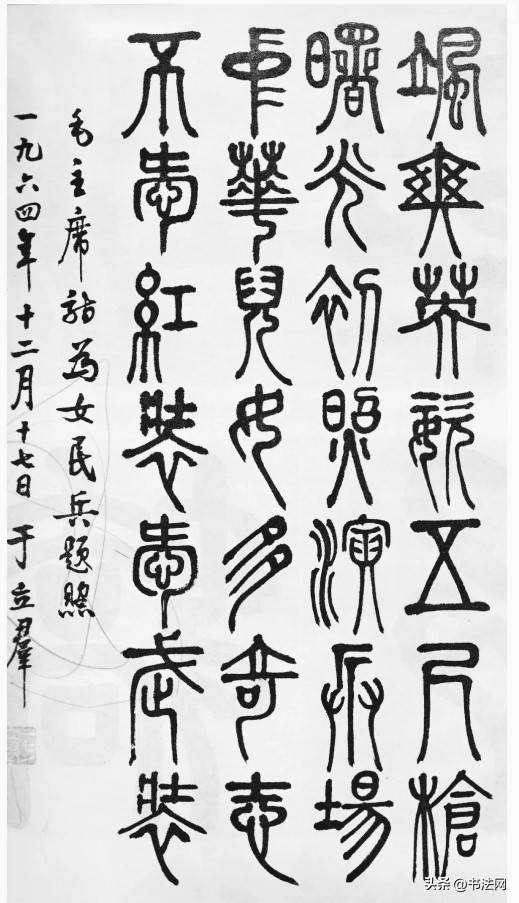 颯爽英姿五尺槍
曙光初照演兵場
中華兒女多奇志
不愛紅裝愛武裝
毛主席詩為女民兵題照
一九六四年十二月十七日 于立羣
头条 @书法网